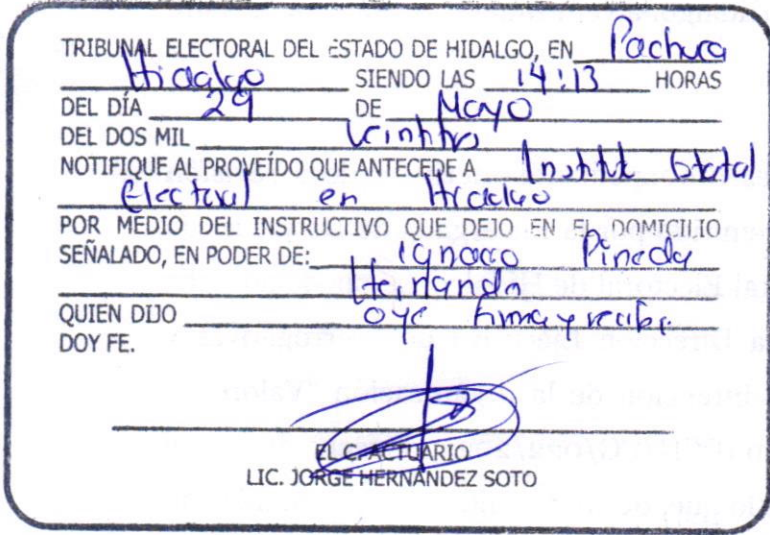 TRIBUNAL ELECTORAL DEL ESTADO DE HIDALGO, EN Pachuca
Hidalgo SIENDO LAS 14:13 HORAS
DEL DÍA 29 DE Mayo
DEL DOS MIL
NOTIFIQUE AL PROVEÍDO QUE ANTECEDE A Instituto Estatal
Electoral en Hidalgo
POR MEDIO DEL INSTRUCTIVO QUE DEJO EN EL DOMICILIO
SEÑALADO, EN PODER DE: Ignacio Pineda
Hernández
QUIEN DIJO oye firma y recibe
DOY FE.
EL C. ACTUARIO
LIC. JORGE HERNÁNDEZ SOTO